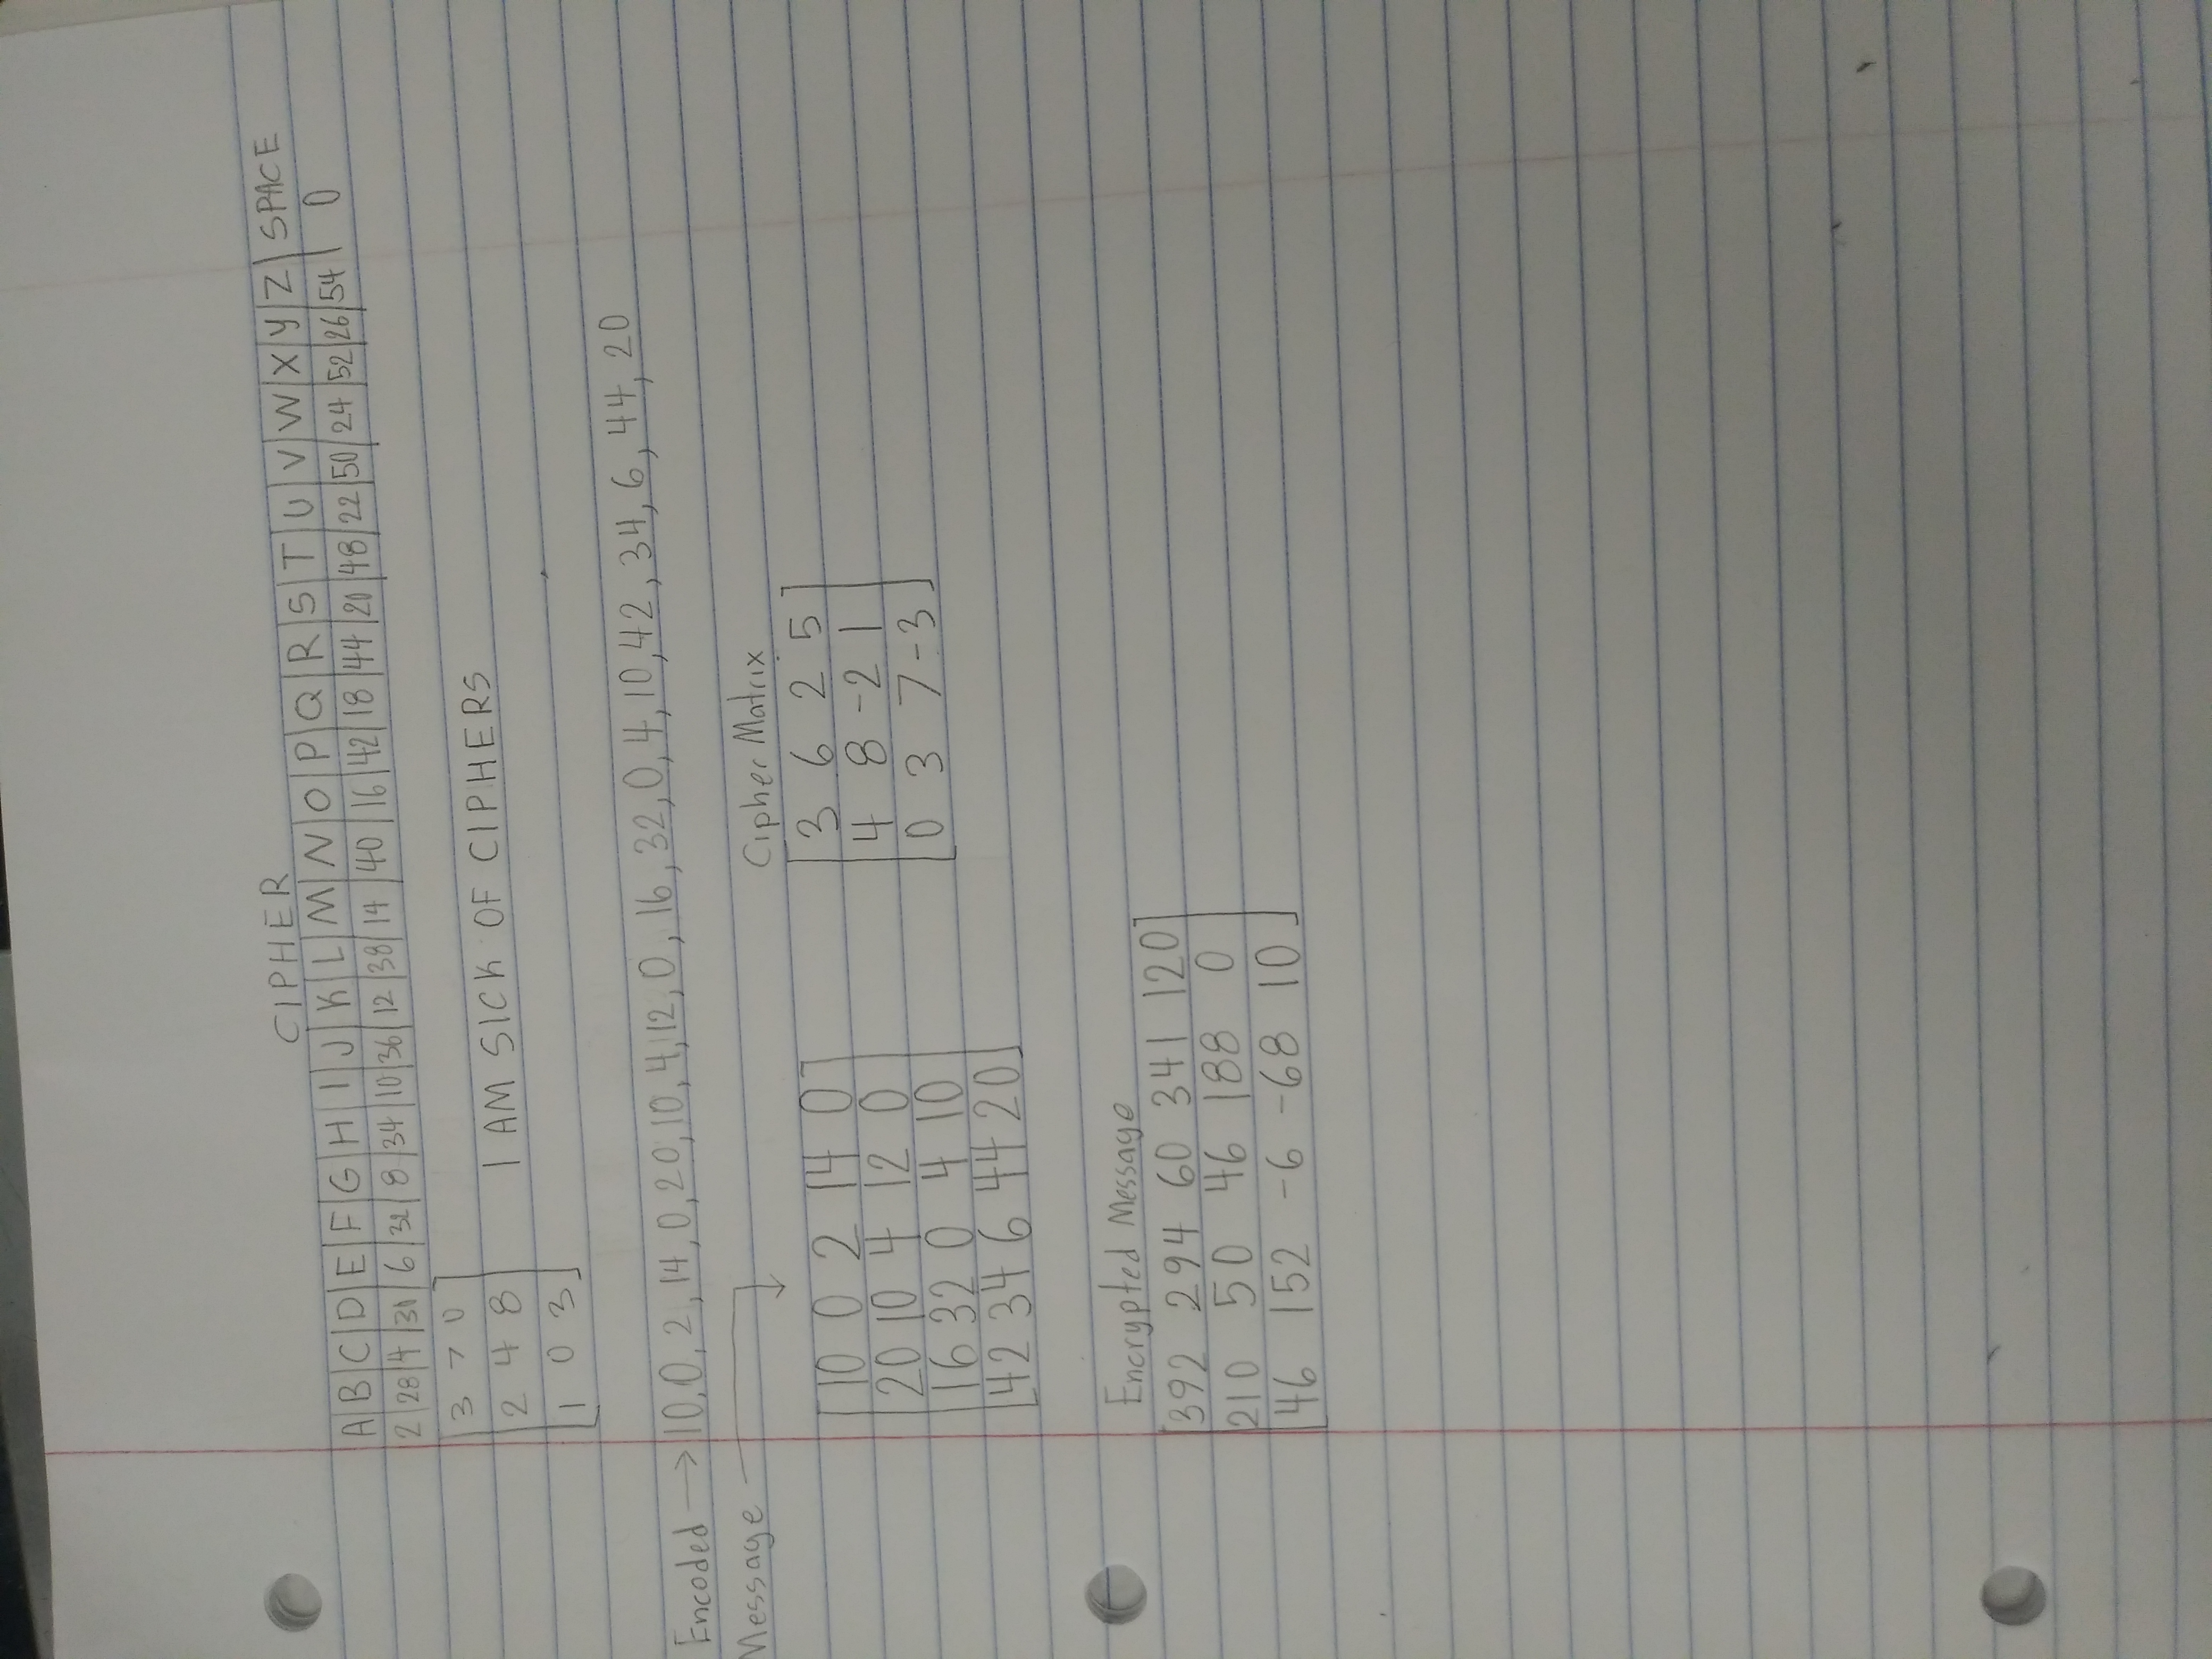 CIPHER
A B C D E F G H I J K L M N O P Q R S T U V W X Y Z SPACE
2 28 4 30 6 32 8 34 10 36 12 38 14 40 16 42 18 44 20 48 22 50 24 52 26 54 0
3 7 0
2 4 8 I AM SICK OF CIPHERS
1 0 3
Encoded → 10, 0, 2, 14, 0, 20, 10, 4, 12, 0, 16, 32, 0, 4, 10, 42, 34, 6, 44, 20
Message
Cipher Matrix
10 0 2 14 0
20 10 4 12 0
16 32 0 4 10
42 34 6 44 20
3 6 2 5
4 8 -2 1
0 3 7 -3
Encrypted Message
392 294 60 341 120
210 50 46 188 0
46 152 -6 -68 10